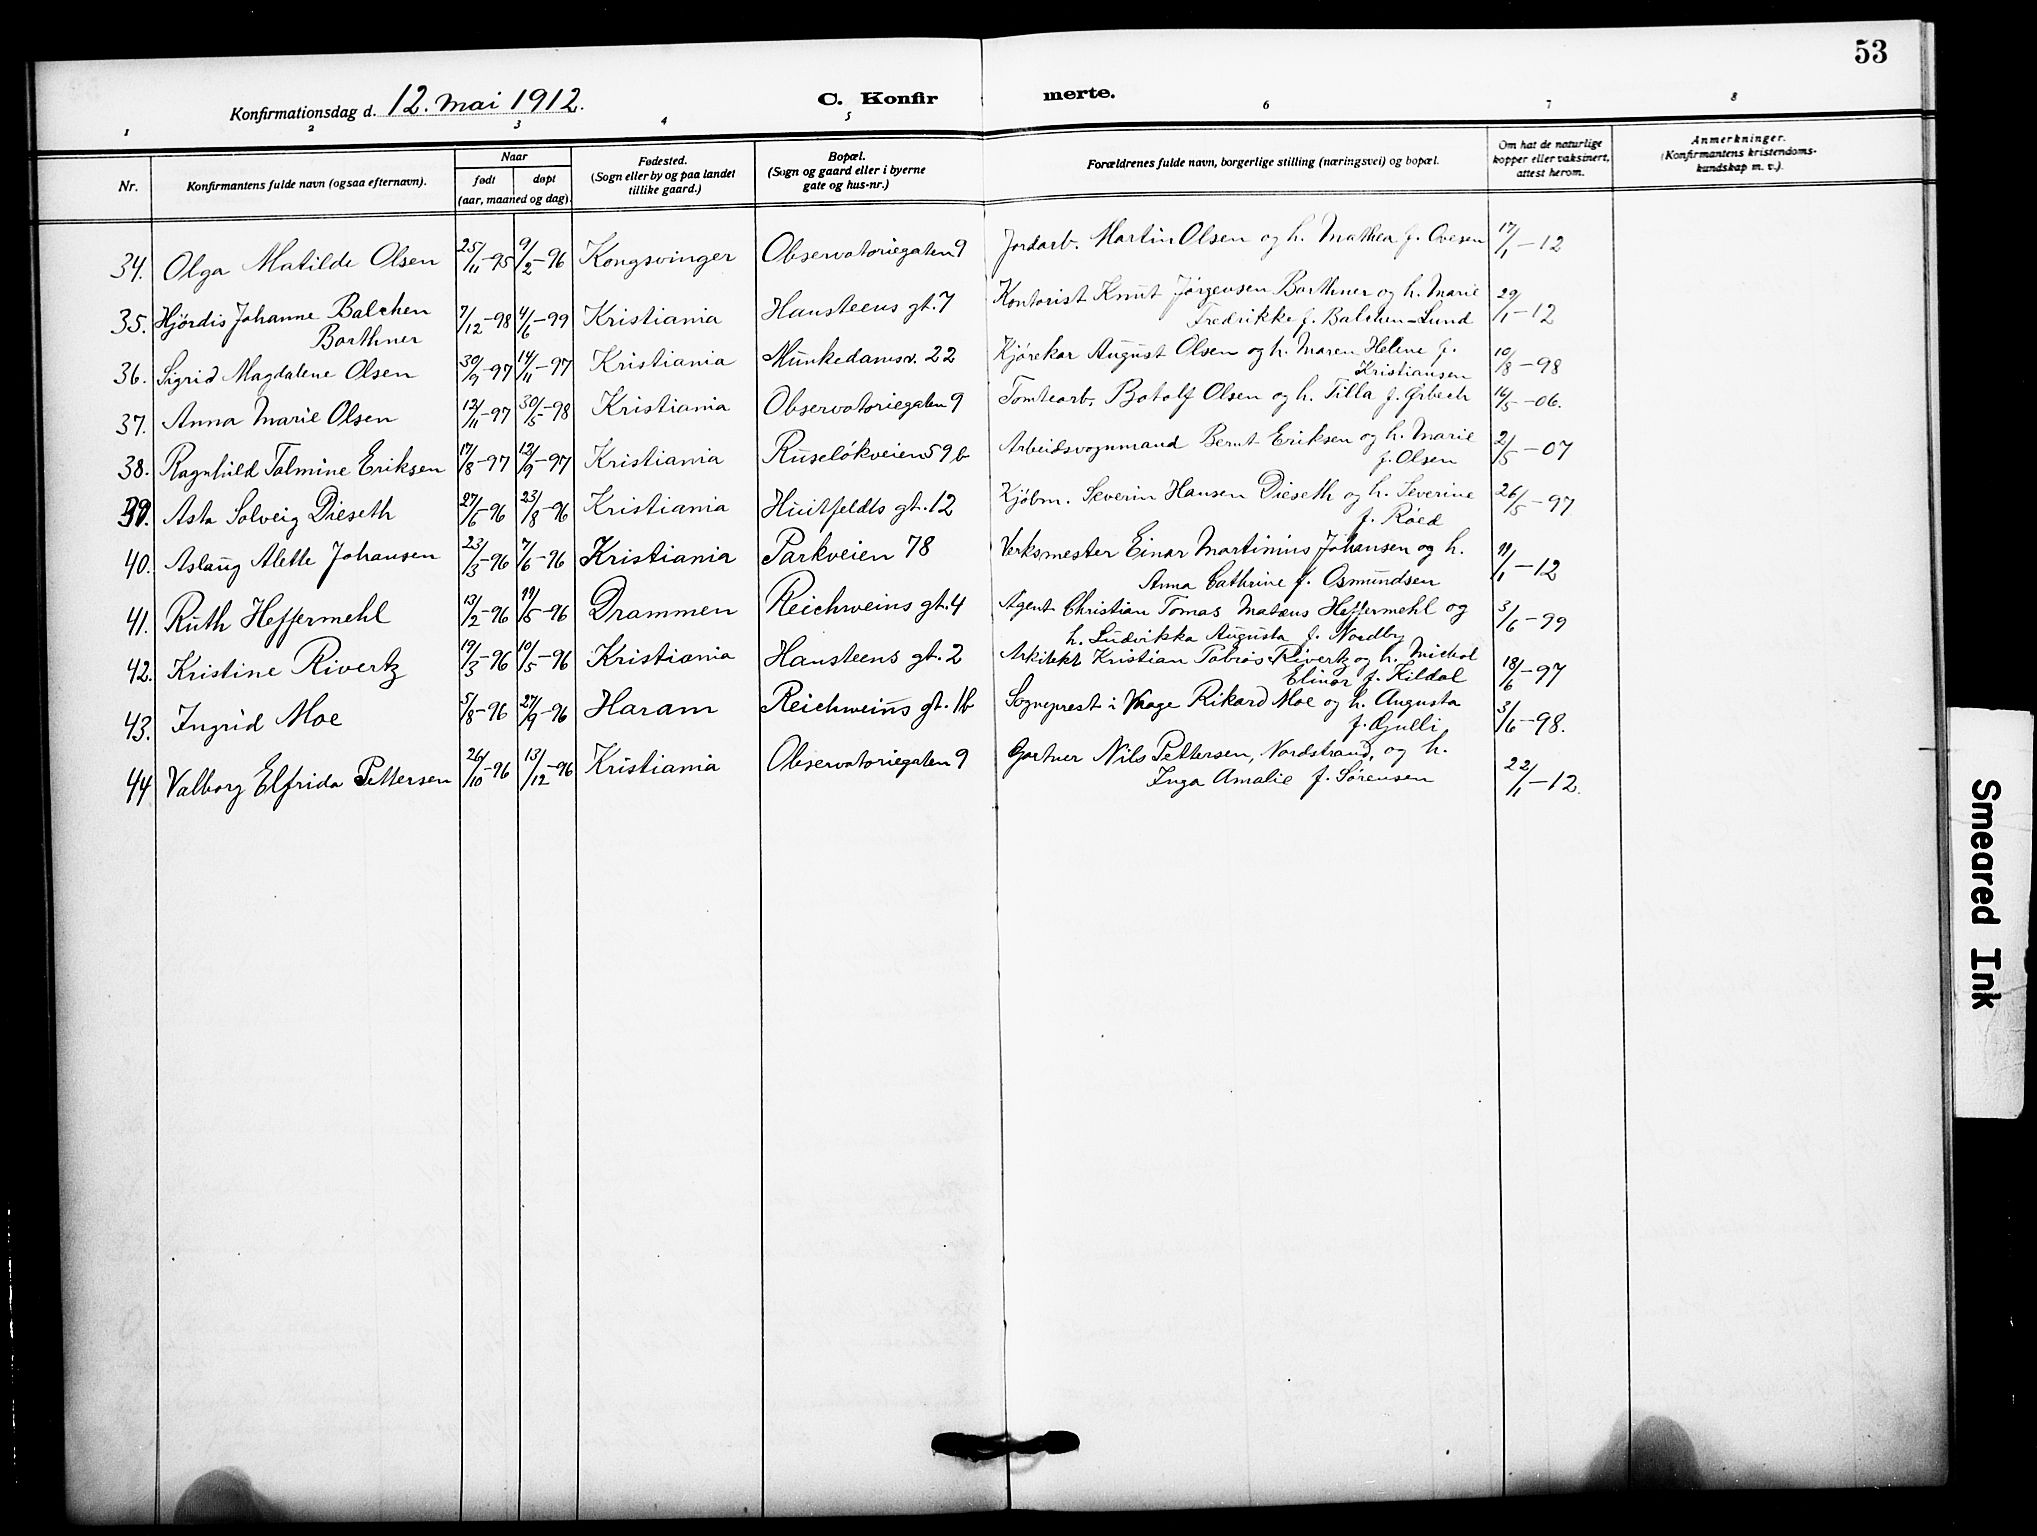 53
Konfirmationsdag d. 12. mai 1912.
C. Konfir merte.
1 2 3 4 5 6 7 8
Nr.
Konfirmantens fulde navn (ogsaa efternavn).
Naar
født døpt
(aar, maaned og dag).
Fødested.
(Sogn eller by og paa landet
tillike gaard.)
Bopæl.
(Sogn og gaard eller i byerne
gate og hus-nr.)
Forældrenes fulde navn, borgerlige stilling (næringsvei) og bopæl.
Om hat de naturlige
kopper eller vaksinert,
attest herom.
Anmerkninger.
(Konfirmantens kristendoms-
kundskap m. v.).
34. Olga Matilde Olsen 25/11-95 9/2-96 Kongsvinger Observatoriegaten 9 Jordarb. Martin Olsen og h. Mathea f. Ovesen 17/1-12
35. Hjørdis Johanne Balchen 7/12-98 4/6-99 Kristiania Hansteens gt. 7 Kontorist Knut Jørgensen Barthner og h. Marie 29/1-12
Barthner Fredrikke f. Balchen-Lund
36. Sigrid Magdalene Olsen 30/9-97 14/11-97 Kristiania Munkedamsv. 22 Kjørekar August Olsen og h. Maren Helene f. 10/8-98
Kristiansen
37. Anna Marie Olsen 12/11-97 30/5-98 Kristiania Observatoriegaten 9 Tomtearb. Botolf Olsen og h. Tilla f. Ørbech 16/5-06.
38. Ragnhild Tolmine Eriksen 17/8-97 12/9-97 Kristiania Ruseløkveien 59 b Arbeidsvognmand Bernt Eriksen og h. Marie 2/5-07
f. Olsen
39. Asta Solveig Dieseth 27/6-96 23/8-96 Kristiania Huitfeldts gt. 12 Kjøbm. Severin Hansen Dieseth og h. Severine 26/5-97
f. Røed
40. Aslaug Alette Johansen 23/3-96 7/6-96 Kristiania Parkveien 78 Verksmester Einar Martinius Johansen og h. 11/1-12
Anna Cathrine f. Osmundsen
41. Ruth Heffermehl 13/2-96 19/5-96 Drammen Reichweins gt. 4 Agent Christian Tomas Matæus Heffermehl og 3/6-99
h. Ludvikka Augusta f. Nordby
42. Kristine Rivertz 19/3-96 10/5-96 Kristiania Hansteens gt. 2 Arkitekt Kristian Tobias Rivertz og h. Michol 18/6-97
Elinor f. Kildal
43. Ingrid Moe 5/8-96 27/9-96 Haram Reichweins gt. 1b Sogneprest i Vaage Rikard Moe og h. Augusta 3/6-98.
f. Gjulli
44 Valborg Elfrida Pettersen 26/10-96 13/12-96 Kristiania Observatoriegaten 9 Gartner Nils Pettersen, Nordstrand, og h. 22/1-12.
Inga Amalie f. Sørensen
Smeared Ink